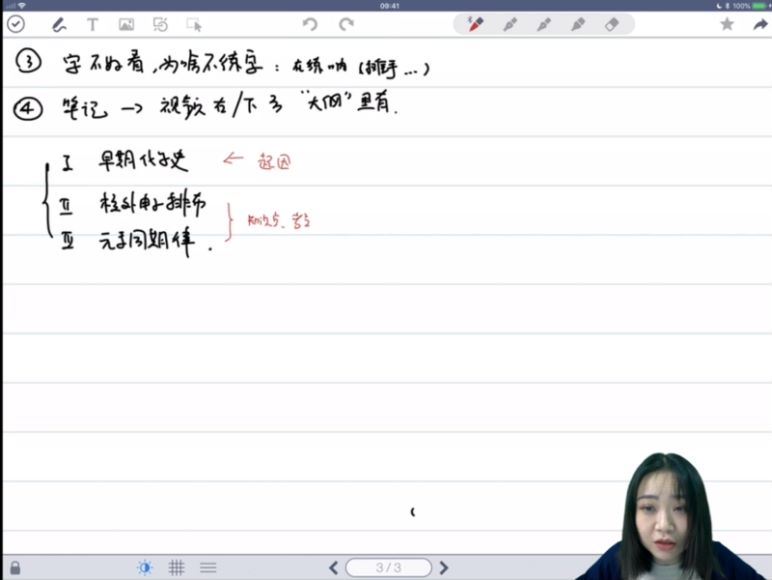 09:41
100%
③ 字不好看,为啥不练字:在练呐(摊手...)
④ 笔记 → 视频右/下方 "大网" 里有.
I 早期化学史 ← 起因
II 核外电子排布
III 元素周期律.
知识点、考点
3/3